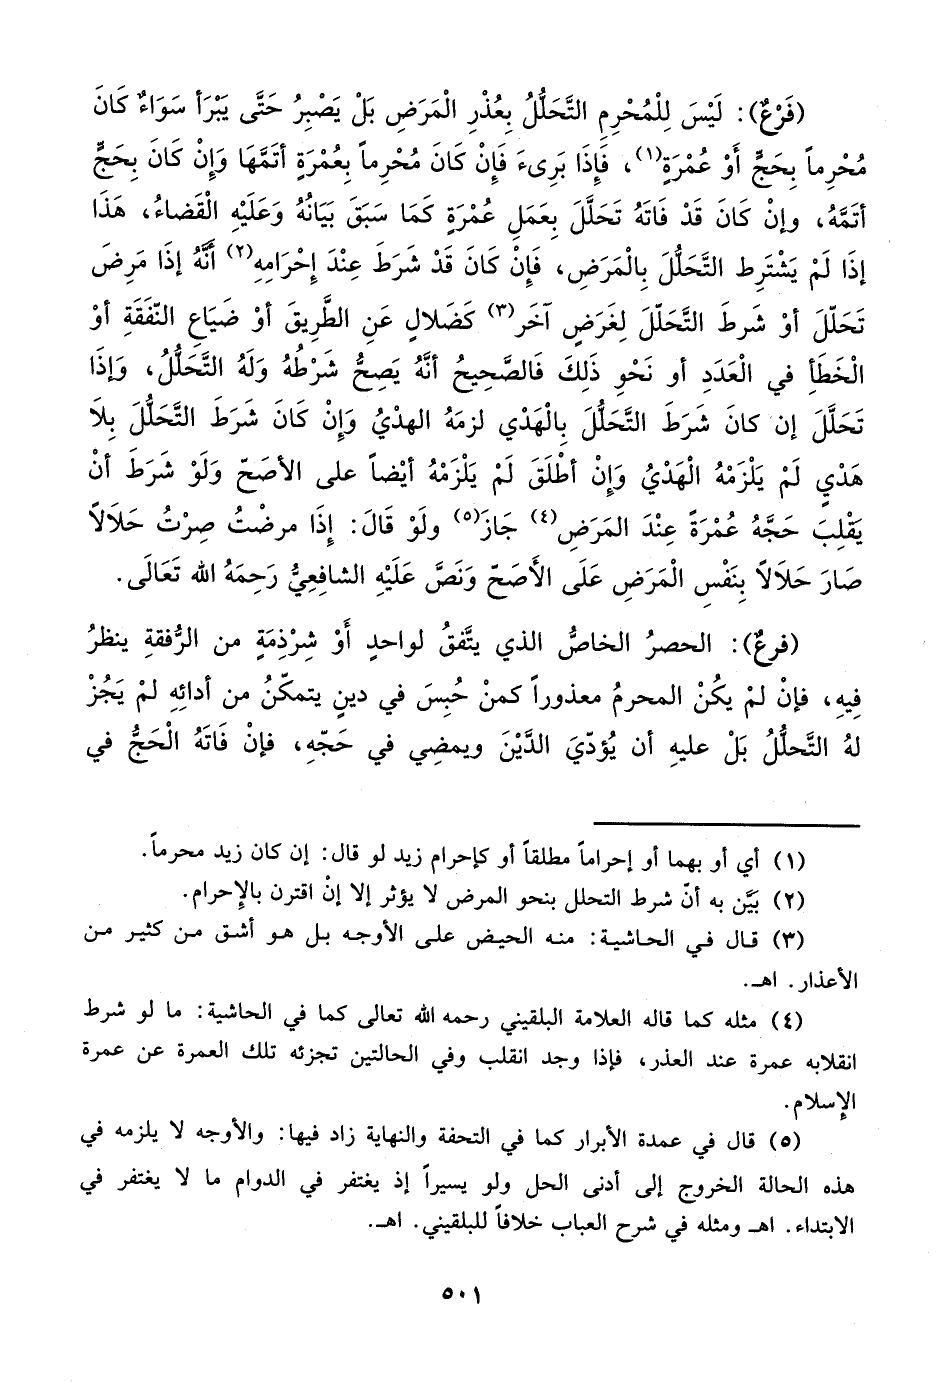 (فَرْعٌ): لَيْسَ لِلْمُحْرِمِ التَّحَلُّلُ بِعُذْرِ الْمَرَضِ بَلْ يَصْبِرُ حَتَّى يَبْرَأ سَوَاءٌ كَانَ
مُحْرِماً بِحَجٍّ أوْ عُمْرَةٍ(١)، فَإِذَا بَرِىءَ فَإِنْ كَانَ مُحْرِماً بِعُمْرَةٍ أتَمَّهَا وَإِنْ كَانَ بِحَجٍّ
أتَمَّهُ، وإنْ كَانَ قَدْ فَاتَهُ تَحَلَّلَ بِعَمَلِ عُمْرَةٍ كَمَا سَبَقَ بَيَانُهُ وَعَلَيْهِ الْقَضَاءُ، هَذَا
إذَا لَمْ يَشْتَرِط التَّحَلُّلَ بِالْمَرَضِ، فَإِنْ كَانَ قَدْ شَرَطَ عِنْدَ إِحْرَامِهِ(٢) أَنَّهُ إذَا مَرِضَ
تَحَلّلَ أوْ شَرطَ التَّحَلّلَ لِغَرَضٍ آخَر(٣) كَضَلالٍ عَنِ الطَّرِيقَ أوْ ضَيَاعِ النّفَقَةِ أوْ
الْخَطَأ في الْعَدَدِ أو نَحْوِ ذَلِكَ فَالصَّحِيحُ أنَّهُ يَصِحُّ شَرْطُهُ وَلَهُ التَّحَلُّلُ، وَإذَا
تَحَلَّلَ إن كانَ شَرَطَ التَّحَلُّلَ بِالْهَدْي لزمَهُ الهدْيُ وَإِنْ كَانَ شَرَطَ التَّحَلُّلَ بِلاَ
هَدْيٍ لَمْ يَلْزَمْهُ الْهَدْيُ وَإِنْ أطْلَقَ لَمْ يَلْزَمْهُ أيْضاً على الأصَحّ وَلَوْ شَرَطَ أنْ
يَقْلِبَ حَجَّهُ عُمْرَةً عِنْدَ المَرَضِ(٤) جَازَ(٥) ولَوْ قَالَ: إِذَا مرضْتُ صِرْتُ حَلَالاً
صَارَ حَلَالاً بِنَفْسِ الْمَرَضِ عَلَى الأَصَحّ وَنَصَّ عَلَيْهِ الشافِعِيُّ رَحِمَهُ الله تَعَالَى.
(فرعٌ): الحصرُ الخاصُّ الذي يتَّفقُ لواحدٍ أَوْ شِرْذِمَةٍ من الرُّفقةِ ينظرُ
فِيهِ، فإنْ لمْ يكُنْ المحرمُ معذوراً كمنْ حُبِسَ في دينٍ يتمكّنُ من أدائِهِ لمْ يَجُزْ
لهُ التَّحللُ بَلْ عليهِ أن يُؤدّيَ الدَّيْنَ ويمضِي في حَجّهِ، فإنْ فَاتَهُ الْحَجُّ في
(١) أي أو بهما أو إحراماً مطلقاً أو كإحرام زيد لو قال: إن كان زيد محرماً.
(٢) بَيَّن به أنّ شرط التحلل بنحو المرض لا يؤثر إلا إنْ اقترن بالإِحرام.
(٣) قال في الحاشية: منه الحيض على الأوجه بل هو أشق من كثير من
الأعذار. اهـ.
(٤) مثله كما قاله العلامة البلقيني رحمه الله تعالى كما في الحاشية: ما لو شرط
انقلابه عمرة عند العذر، فإذا وجد انقلب وفي الحالتين تجزئه تلك العمرة عن عمرة
الإِسلام.
(٥) قال في عمدة الأبرار كما في التحفة والنهاية زاد فيها: والأوجه لا يلزمه في
هذه الحالة الخروج إلى أدنى الحل ولو يسيراً إذ يغتفر في الدوام ما لا يغتفر في
الابتداء. اهـ ومثله في شرح العباب خلافاً للبلقيني. اهـ.
٥٠١